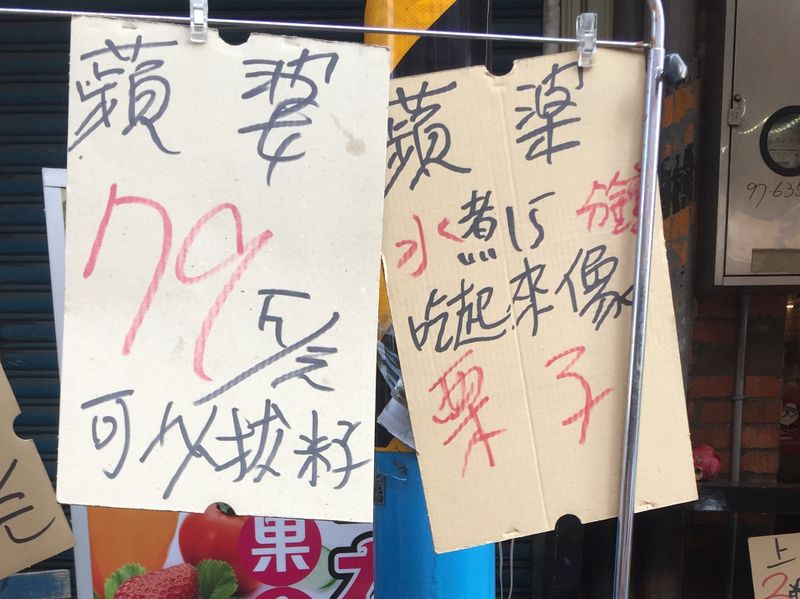 蘋婆
79斤/元
可以拔籽
蘋婆
水煮15分鐘
吃起來像
栗子
果
97-635
元
上
2